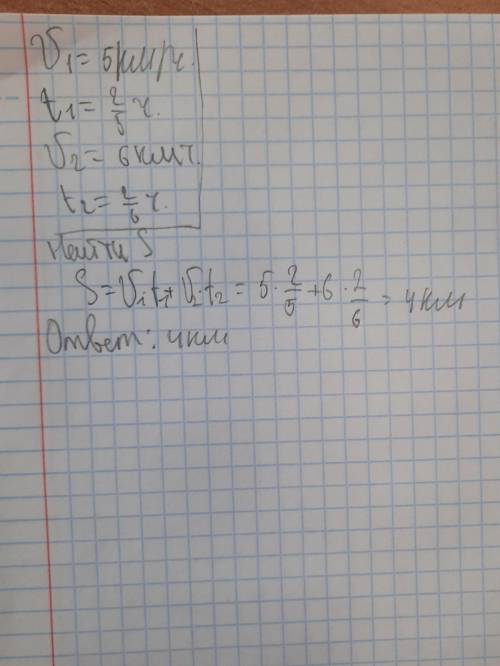 V₁ = 5 км/ч.
t₁ = 2/5 ч.
V₂ = 6 км ч.
t₂ = 2/6 ч.
Найти S
S = V₁t₁ + V₂·t₂ = 5 · 2/5 + 6 · 2/6 = 4 км
Ответ: 4 км